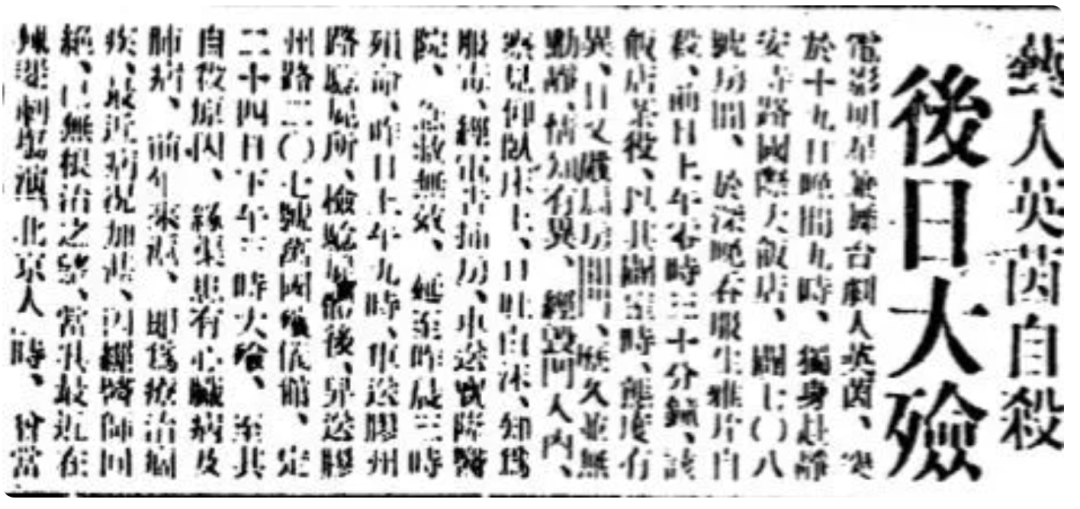 藝人英茵自殺
後日大殮
電影明星兼舞台劇人英茵、突
於十九日晚間九時、獨身赴靜
安寺路國際大飯店、闢七〇八
號房間、於深晚吞服生雅片自
殺、前日上午零時三十分鐘、該
飯店茶役、以其闢室時、態度有
異、且又 房間、歷久並無
動靜、情知有異、經毀門入內、
察見仰臥床上、口吐白沫、知爲
服毒、經 車送 醫
院、急救無效、延至昨晨三時
殞命、昨日上午九時、車送膠州
路驗屍所、檢驗屍體後、舁送膠
州路二〇七號萬國殯儀館、定
二十四日下午三時大殮、至其
自殺原因、 患有心臟病及
肺病、前年來滬、即爲療治痼
疾、最近病況加劇、因經醫師回
絕、已無根治之望、當其最近在
劇場演、北京人、時、曾當